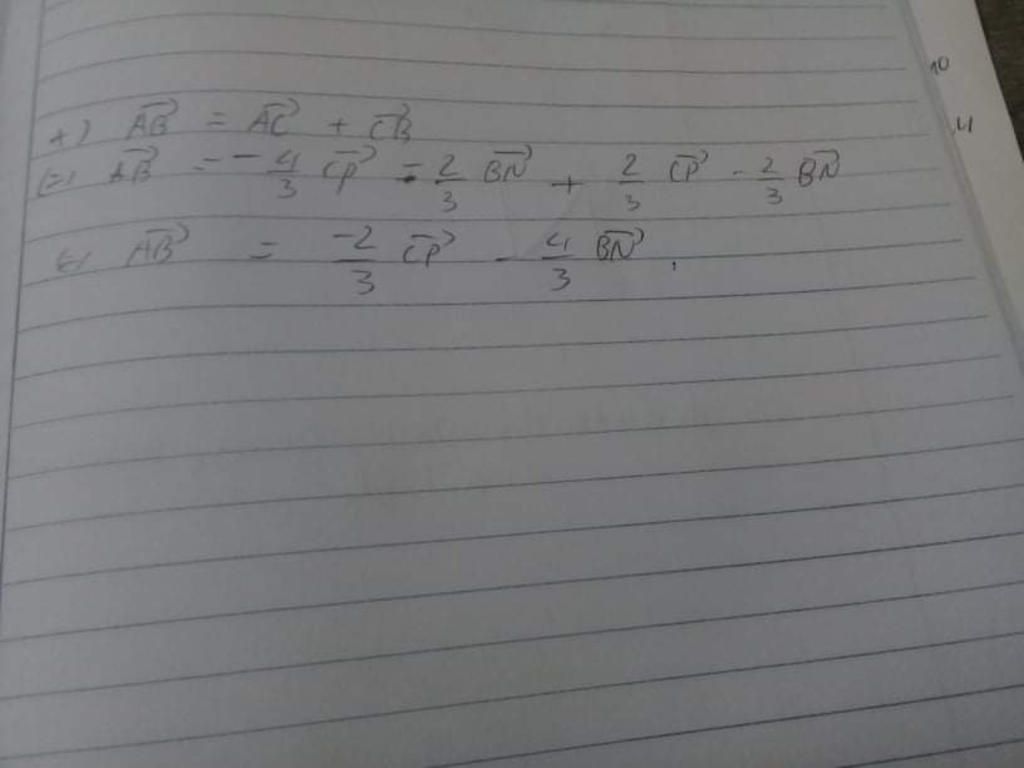 +) $\overrightarrow{AB} = \overrightarrow{AC} + \overrightarrow{CB}$
(=) $\overrightarrow{AB} = -\frac{4}{3} \overrightarrow{CP} - \frac{2}{3} \overrightarrow{BN} + \frac{2}{3} \overrightarrow{CP} - \frac{2}{3} \overrightarrow{BN}$
(=) $\overrightarrow{AB} = \frac{-2}{3} \overrightarrow{CP} - \frac{4}{3} \overrightarrow{BN}$.